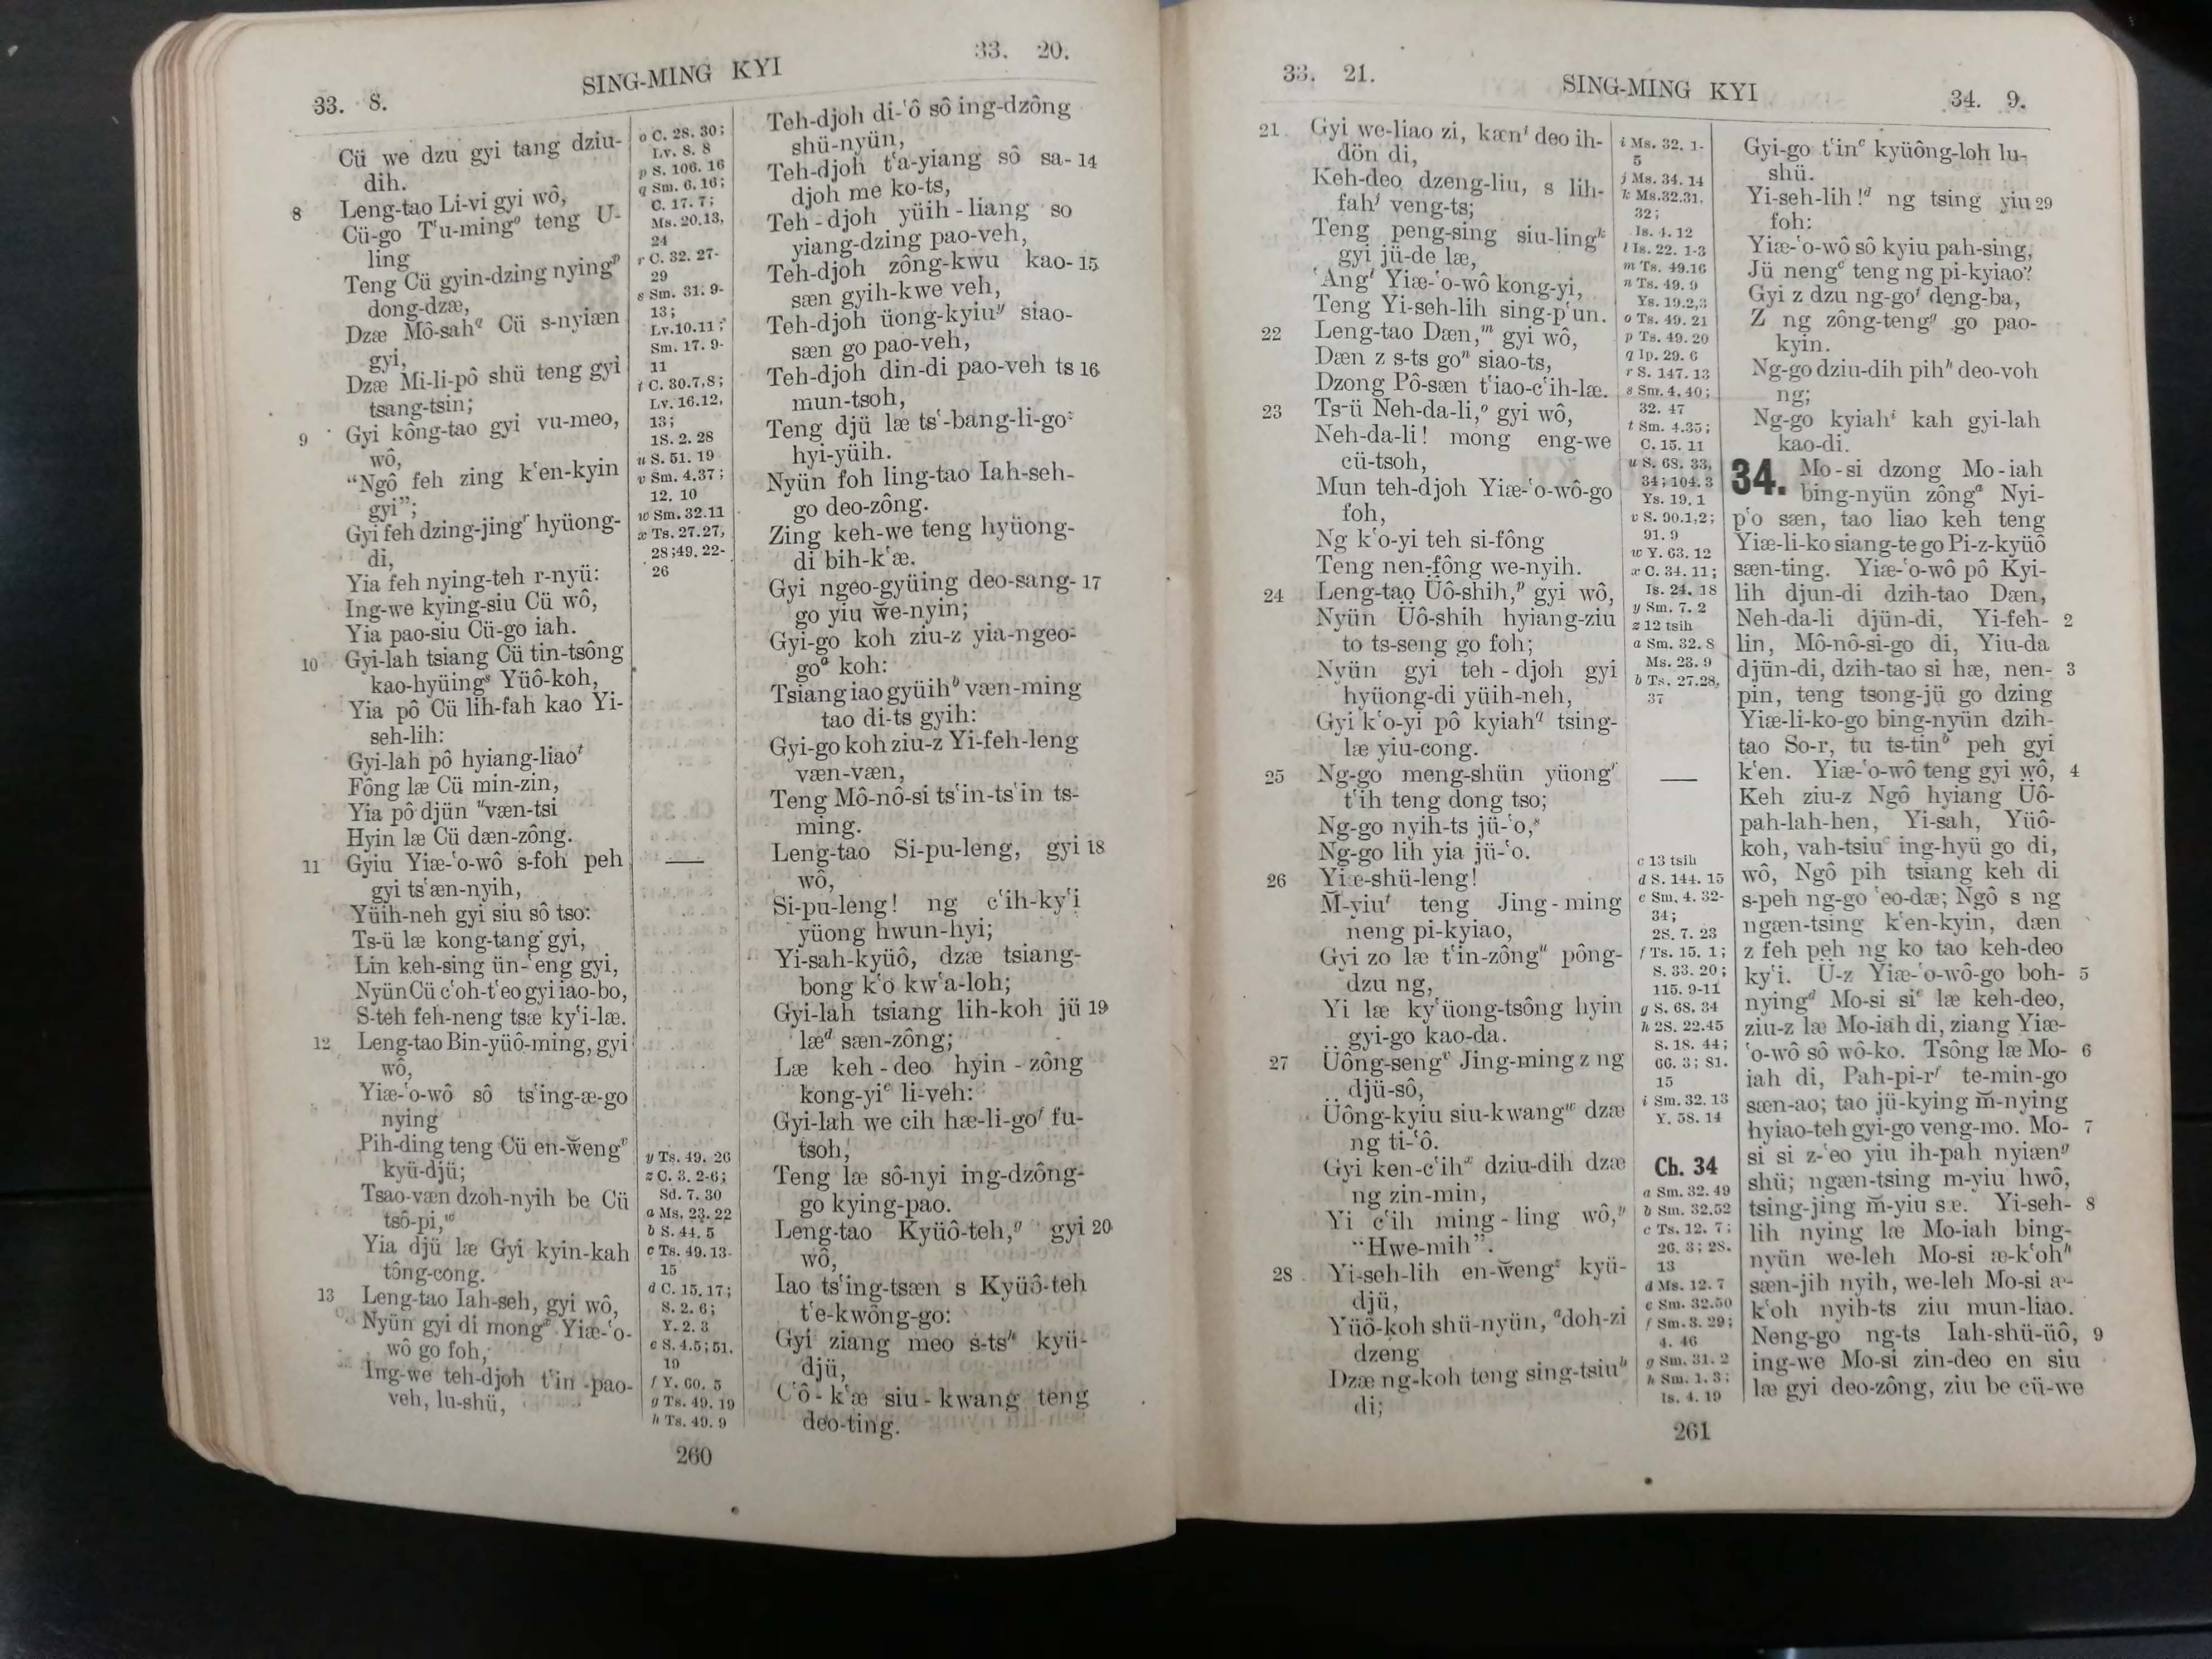 33. 8.
SING-MING KYI
33. 20.
Cü we dzu gyi tang dziu-
dih.
8 Leng-tao Li-vi gyi wô,
Cü-go T'u-mingᵒ teng U-
ling
Teng Cü gyin-dzing nyingᵖ
dong-dzæ,
Dzæ Mô-sah^q Cü s-nyiæn
gyi,
Dzæ Mi-li-pô shü teng gyi
tsang-tsin;
9 Gyi kông-tao gyi vu-meo,
wô,
“Ngô feh zing k'en-kyin
gyi”;
Gyi feh dzing-jingʳ hyüong-
di,
Yia feh nying-teh r-nyü:
Ing-we kying-siu Cü wô,
Yia pao-siu Cü-go iah.
10 Gyi-lah tsiang Cü tin-tsông
kao-hyüingˢ Yüô-koh,
Yia pô Cü lih-fah kao Yi-
seh-lih:
Gyi-lah pô hyiang-liaoᵗ
Fông læ Cü min-zin,
Yia pô djün ᵘvæn-tsi
Hyin læ Cü dæn-zông.
11 Gyiu Yiæ-'o-wô s-foh peh
gyi ts'æn-nyih,
Yüih-neh gyi siu sô tso:
Ts-ü læ kong-tang gyi,
Lin keh-sing ün-'eng gyi,
Nyün Cü c'oh-t'eo gyi iao-bo,
S-teh feh-neng tsæ ky'i-læ.
12 Leng-tao Bin-yüô-ming, gyi
wô,
Yiæ-'o-wô sô ts'ing-æ-go
nying
Pih-ding teng Cü en-w̌engᵛ
kyü-djü;
Tsao-væn dzoh-nyih be Cü
tsô-pi,ʷ
Yia djü læ Gyi kyin-kah
tông-cong.
13 Leng-tao Iah-seh, gyi wô,
Nyün gyi di mongˣ Yiæ-'o-
wô go foh,
Ing-we teh-djoh t'in-pao-
veh, lu-shü,
o C. 28. 30;
Lv. 8. 8
p S. 106. 16
q Sm. 6. 16;
C. 17. 7;
Ms. 20.13,
24
r C. 32. 27-
29
s Sm. 31. 9-
13;
Lv.10.11;
Sm. 17. 9-
11
t C. 30.7,8;
Lv. 16.12,
13;
1S. 2. 28
u S. 51. 19
v Sm. 4.37;
12. 10
w Sm. 32.11
x Ts. 27.27,
28;49. 22-
26
y Ts. 49. 26
z C. 3. 2-6;
Sd. 7. 30
a Ms. 23. 22
b S. 44. 5
c Ts. 49. 13-
15
d C. 15. 17;
S. 2. 6;
Y. 2. 3
e S. 4.5;51.
19
f Y. 60. 5
g Ts. 49. 19
h Ts. 49. 9
Teh-djoh di-'ô sô ing-dzông
shü-nyün,
Teh-djoh t'a-yiang sô sa- 14
djoh me ko-ts,
Teh-djoh yüih-liang so
yiang-dzing pao-veh,
Teh-djoh zông-kwu kao- 15
sæn gyih-kwe veh,
Teh-djoh üong-kyiuʸ siao-
sæn go pao-veh,
Teh-djoh din-di pao-veh ts 16
mun-tsoh,
Teng djü læ ts'-bang-li-goᶻ
hyi-yüih.
Nyün foh ling-tao Iah-seh-
go deo-zông.
Zing keh-we teng hyüong-
di bih-k'æ.
Gyi ngeo-gyüing deo-sang- 17
go yiu w̌e-nyin;
Gyi-go koh ziu-z yia-ngeo-
goᵃ koh:
Tsiang iao gyüihᵇ væn-ming
tao di-ts gyih:
Gyi-go koh ziu-z Yi-feh-leng
væn-væn,
Teng Mô-nô-si ts'in-ts'in ts-
ming.
Leng-tao Si-pu-leng, gyi 18
wô,
Si-pu-leng! ng c'ih-ky'i
yüong hwun-hyi;
Yi-sah-kyüô, dzæ tsiang-
bong k'o kw'a-loh;
Gyi-lah tsiang lih-koh jü 19
læᵈ sæn-zông;
Læ keh-deo hyin-zông
kong-yiᵉ li-veh:
Gyi-lah we cih hæ-li-goᶠ fu-
tsoh,
Teng læ sô-nyi ing-dzông-
go kying-pao.
Leng-tao Kyüô-teh,ᵍ gyi 20
wô,
Iao ts'ing-tsæn s Kyüô-teh
t'e-kwông-go:
Gyi ziang meo s-ts'ʰ kyü-
djü,
C'ô-k'æ siu-kwang teng
deo-ting.
260
33. 21.
SING-MING KYI
34. 9.
21 Gyi we-liao zi, kænⁱ deo ih-
dön di,
Keh-deo dzeng-liu, s lih-
fahʲ veng-ts;
Teng peng-sing siu-lingᵏ
gyi jü-de læ,
'Angˡ Yiæ-'o-wô kong-yi,
Teng Yi-seh-lih sing-p'un.
22 Leng-tao Dæn,ᵐ gyi wô,
Dæn z s-ts goⁿ siao-ts,
Dzong Pô-sæn t'iao-c'ih-læ.
23 Ts-ü Neh-da-li,ᵒ gyi wô,
Neh-da-li! mong eng-we
cü-tsoh,
Mun teh-djoh Yiæ-'o-wô-go
foh,
Ng k'o-yi teh si-fông
Teng nen-fông we-nyih.
24 Leng-tao Üô-shih,ᵖ gyi wô,
Nyün Üô-shih hyiang-ziu
to ts-seng go foh;
Nyün gyi teh-djoh gyi
hyüong-di yüih-neh,
Gyi k'o-yi pô kyiah^q tsing-
læ yiu-cong.
25 Ng-go meng-shün yüongʳ
t'ih teng dong tso;
Ng-go nyih-ts jü-'o,ˢ
Ng-go lih yia jü-'o.
26 Yiæ-shü-leng!
M̌-yiuᵗ teng Jing-ming
neng pi-kyiao,
Gyi zo læ t'in-zôngᵘ pông-
dzu ng,
Yi læ ky'üong-tsông hyin
gyi-go kao-da.
27 Üông-sengᵛ Jing-ming z ng
djü-sô,
Üông-kyiu siu-kwangʷ dzæ
ng ti-'ô.
Gyi ken-c'ihˣ dziu-dih dzæ
ng zin-min,
Yi c'ih ming-ling wô,ʸ
“Hwe-mih”.
28 Yi-seh-lih en-w̌engᶻ kyü-
djü,
Yüô-koh shü-nyün, ᵃdoh-zi
dzeng
Dzæ ng-koh teng sing-tsiuᵇ
di;
i Ms. 32. 1-
5
j Ms. 34. 14
k Ms.32.31,
32;
Is. 4. 12
l Is. 22. 1-3
m Ts. 49.16
n Ts. 49. 9
Ys. 19.2,3
o Ts. 49. 21
p Ts. 49. 20
q Ip. 29. 6
r S. 147. 13
s Sm. 4. 40;
32. 47
t Sm. 4.35;
C. 15. 11
u S. 68. 33,
34;104. 3
Ys. 19. 1
v S. 90.1,2;
91. 9
w Y. 63. 12
x C. 34. 11;
Is. 24. 18
y Sm. 7. 2
z 12 tsih
a Sm. 32. 8
Ms. 23. 9
b Ts. 27.28,
37
c 13 tsih
d S. 144. 15
e Sm. 4. 32-
34;
2S. 7. 23
f Ts. 15. 1;
S. 33. 20;
115. 9-11
g S. 68. 34
h 2S. 22.45
S. 18. 44;
66. 3; 81.
15
i Sm. 32. 13
Y. 58. 14
Ch. 34
a Sm. 32. 49
b Sm. 32.52
c Ts. 12. 7;
26. 3; 28.
13
d Ms. 12. 7
e Sm. 32.50
f Sm. 3. 29;
4. 46
g Sm. 31. 2
h Sm. 1. 3;
Is. 4. 19
Gyi-go t'inᶜ kyüông-loh lu-
shü.
Yi-seh-lih!ᵈ ng tsing yiu 29
foh:
Yiæ-'o-wô sô kyiu pah-sing,
Jü nengᵉ teng ng pi-kyiao?
Gyi z dzu ng-goᶠ deng-ba,
Z ng zông-tengᵍ go pao-
kyin.
Ng-go dziu-dih pihʰ deo-voh
ng;
Ng-go kyiahⁱ kah gyi-lah
kao-di.
34. Mo-si dzong Mo-iah
bing-nyün zôngᵃ Nyi-
p'o sæn, tao liao keh teng
Yiæ-li-ko siang-te go Pi-z-kyüô
sæn-ting. Yiæ-'o-wô pô Kyi-
lih djun-di dzih-tao Dæn,
Neh-da-li djün-di, Yi-feh- 2
lin, Mô-nô-si-go di, Yiu-da
djün-di, dzih-tao si hæ, nen- 3
pin, teng tsong-jü go dzing
Yiæ-li-ko-go bing-nyün dzih-
tao So-r, tu ts-tinᵇ peh gyi
k'en. Yiæ-'o-wô teng gyi wô, 4
Keh ziu-z Ngô hyiang Üô-
pah-lah-hen, Yi-sah, Yüô-
koh, vah-tsiuᶜ ing-hyü go di,
wô, Ngô pih tsiang keh di
s-peh ng-go 'eo-dæ; Ngô s ng
ngæn-tsing k'en-kyin, dæn
z feh peh ng ko tao keh-deo
ky'i. Ü-z Yiæ-'o-wô-go boh- 5
nyingᵈ Mo-si siᵉ læ keh-deo,
ziu-z læ Mo-iah di, ziang Yiæ-
'o-wô sô wô-ko. Tsông læ Mo- 6
iah di, Pah-pi-rᶠ te-min-go
sæn-ao; tao jü-kying m̌-nying
hyiao-teh gyi-go veng-mo. Mo- 7
si si z-'eo yiu ih-pah nyiænᵍ
shü; ngæn-tsing m-yiu hwô,
tsing-jing m̌-yiu se. Yi-seh- 8
lih nying læ Mo-iah bing-
nyün we-leh Mo-si æ-k'ohʰ
sæn-jih nyih, we-leh Mo-si æ-
k'oh nyih-ts ziu mun-liao.
Neng-go ng-ts Iah-shü-üô, 9
ing-we Mo-si zin-deo en siu
læ gyi deo-zông, ziu be cü-we
261